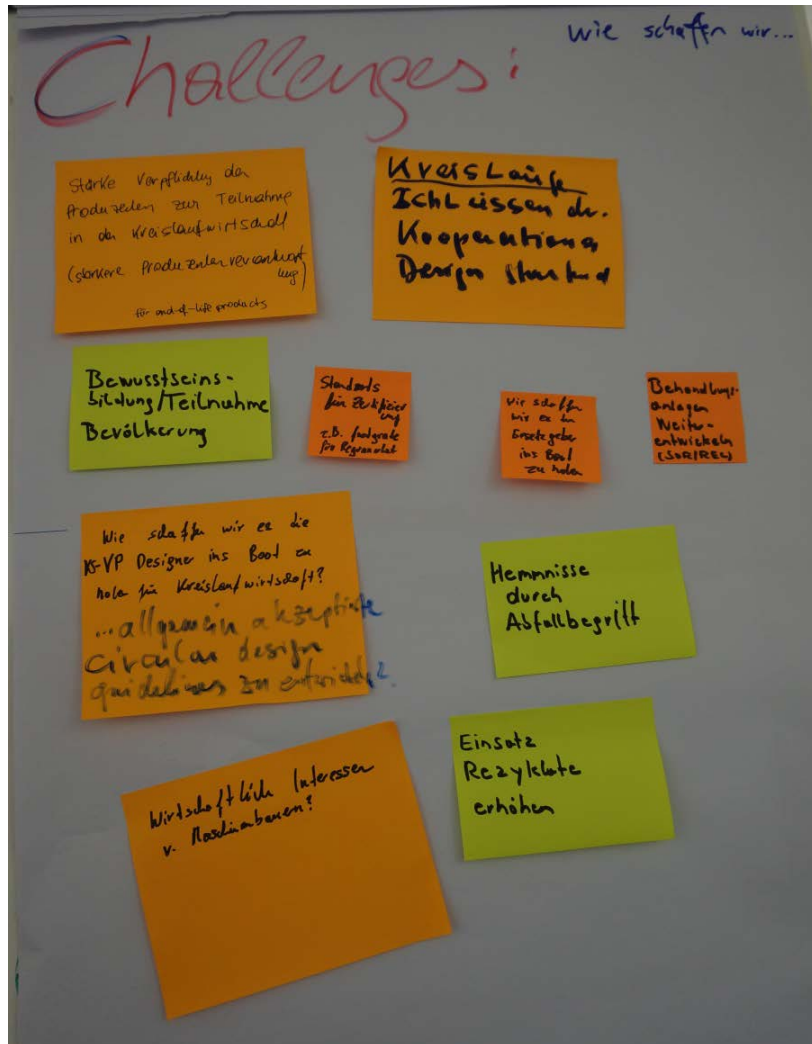 Wie schaffen wir...
Challenges:
Starke Verpflichtung der
Produzenten zur Teilnahme
in der Kreislaufwirtschaft
(stärkere Produzentenverantwort
ung)
für end-of-life products
Kreisläufe
Schliessen dr.
Kooperations
Design
Bewusstseins-
bildung/Teilnahme
Bevölkerung
Standards
für Zertifizier
ung
z.B. foodgrade
für Regranulat
Wie schaffen
wir es den
Gesetzgeber
ins Boot
zu holen
Behandlungs-
anlagen
Weiter-
entwickeln
(SOR/REC)
Wie schaffen wir es die
KS-VP Designer ins Boot zu
holen für Kreislaufwirtschaft?
...allgemein akzeptierte
circular design
guidelines zu entwickeln?
Hemmnisse
durch
Abfallbegriff
Einsatz
Rezyklate
erhöhen
Wirtschaftlich Interessen
v. Maschinenbauern?